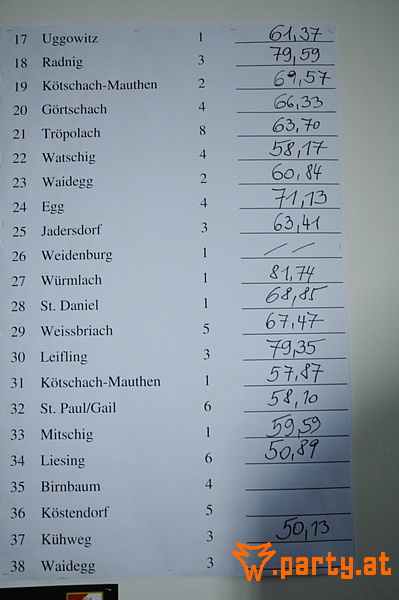 17 Uggowitz 1 61,37
18 Radnig 3 79,59
19 Kötschach-Mauthen 2 69,57
20 Görtschach 4 66,33
21 Tröpolach 8 63,70
22 Watschig 4 58,17
23 Waidegg 2 60,84
24 Egg 4 71,13
25 Jadersdorf 3 63,41
26 Weidenburg 1 //
27 Würmlach 1 81,74
28 St. Daniel 1 68,85
29 Weissbriach 5 67,47
30 Leifling 3 79,35
31 Kötschach-Mauthen 1 57,87
32 St. Paul/Gail 6 58,10
33 Mitschig 1 59,59
34 Liesing 6 50,89
35 Birnbaum 4
36 Köstendorf 5
37 Kühweg 3 50,13
38 Waidegg 3
.party.at